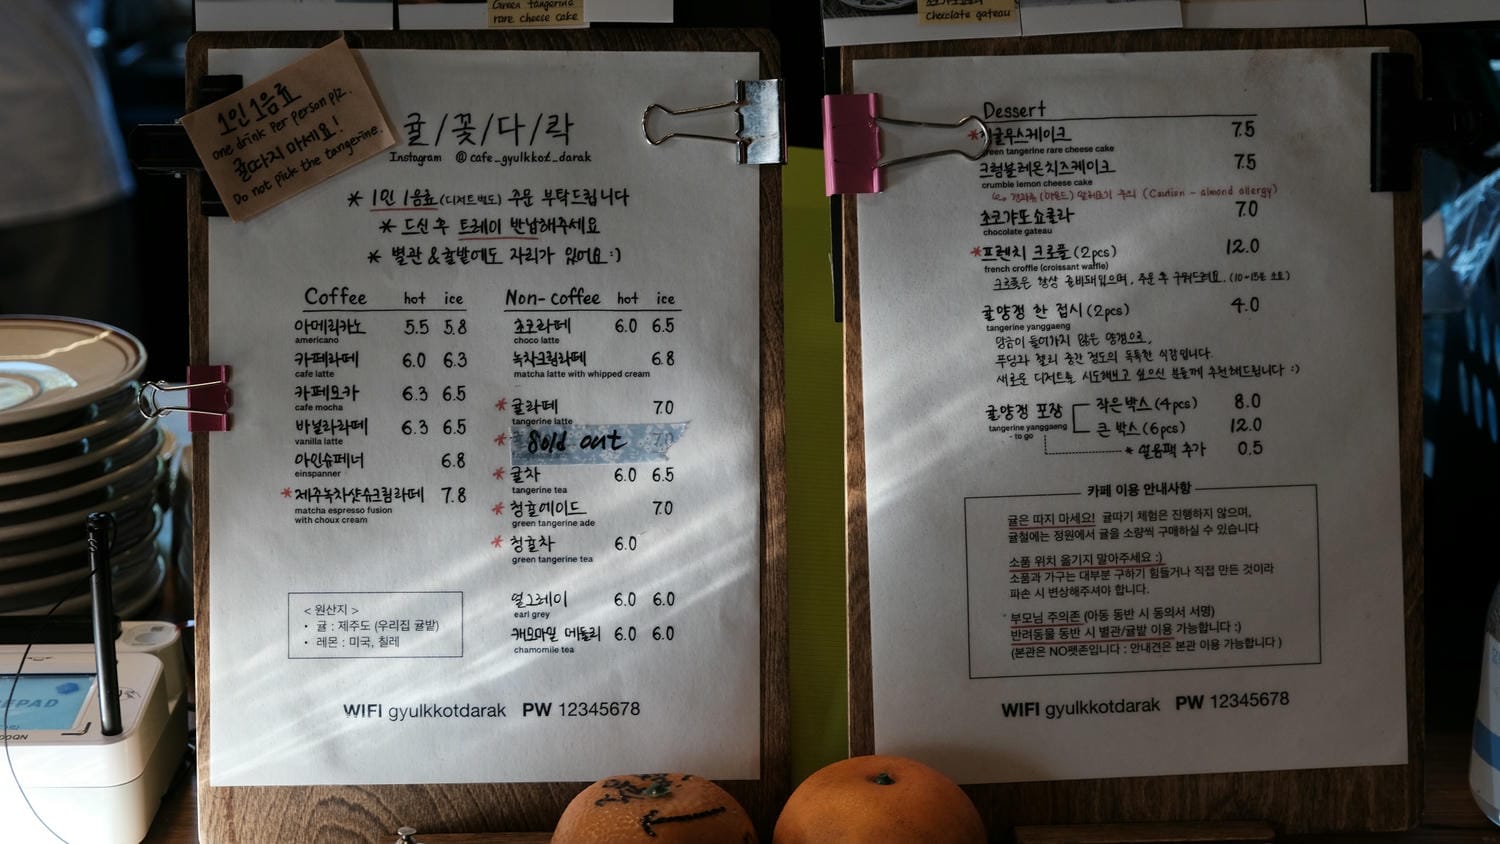 Green tangerine
rare cheese cake
chocolate gateau
1인 1음료
one drink per person plz.
귤따지 마세요!
Do not pick the tangerine.
귤/꽃/다/락
Instagram @cafe_gyulkkot_darak
* 1인 1음료 (디저트 별도) 주문 부탁드립니다
* 드신 후 트레이 반납해주세요
* 별관 & 귤밭에도 자리가 있어요 :)
Coffee hot ice
아메리카노 5.5 5.8
americano
카페라떼 6.0 6.3
cafe latte
카페모카 6.3 6.5
cafe mocha
바닐라라떼 6.3 6.5
vanilla latte
아인슈페너 6.8
einspanner
* 제주녹차샷슈크림라떼 7.8
matcha espresso fusion
with choux cream
Non-coffee hot ice
초코라떼 6.0 6.5
choco latte
녹차크림라떼 6.8
matcha latte with whipped cream
* 귤라떼 7.0
tangerine latte
* Sold out 7.0
* 귤차 6.0 6.5
tangerine tea
* 청귤에이드 7.0
green tangerine ade
* 청귤차 6.0
green tangerine tea
얼그레이 6.0 6.0
earl grey
캐모마일 메들리 6.0 6.0
chamomile tea
< 원산지 >
• 귤 : 제주도 (우리집 귤밭)
• 레몬 : 미국, 칠레
WIFI gyulkkotdarak PW 12345678
Dessert
* 귤우스케이크 7.5
green tangerine rare cheese cake
크럼블레몬치즈케이크 7.5
crumble lemon cheese cake
견과류 (아몬드) 알레르기 주의 (Caution - almond allergy)
초코갸또쇼콜라 7.0
chocolate gateau
* 프렌치 크로플 (2pcs) 12.0
french croffle (croissant waffle)
크로플은 항상 준비돼있으며, 주문 후 구워드려요. (10~15분 소요)
귤양갱 한 접시 (2pcs) 4.0
tangerine yanggaeng
앙금이 들어가지 않은 양갱으로,
푸딩과 젤리 중간 정도의 독특한 식감입니다.
새로운 디저트를 시도해보고 싶으신 분들께 추천해드립니다 :)
귤양갱 포장 작은 박스 (4pcs) 8.0
tangerine yanggaeng
- to go
큰 박스 (6pcs) 12.0
* 얼음팩 추가 0.5
카페 이용 안내사항
귤은 따지 마세요! 귤따기 체험은 진행하지 않으며,
귤철에는 정원에서 귤을 소량씩 구매하실 수 있습니다
소품 위치 옮기지 말아주세요 :)
소품과 가구는 대부분 구하기 힘들거나 직접 만든 것이라
파손 시 변상해주셔야 합니다.
부모님 주의존 (아동 동반 시 동의서 서명)
반려동물 동반 시 별관/귤밭 이용 가능합니다 :)
(본관은 NO펫존입니다 : 안내견은 본관 이용 가능합니다)
WIFI gyulkkotdarak PW 12345678